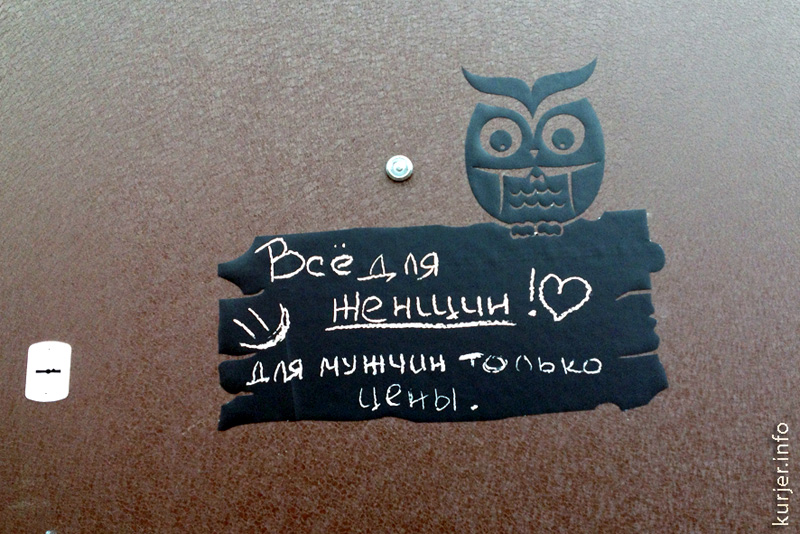 Всё для
женщин!♡
для мужчин только
цены.
kurjer.info